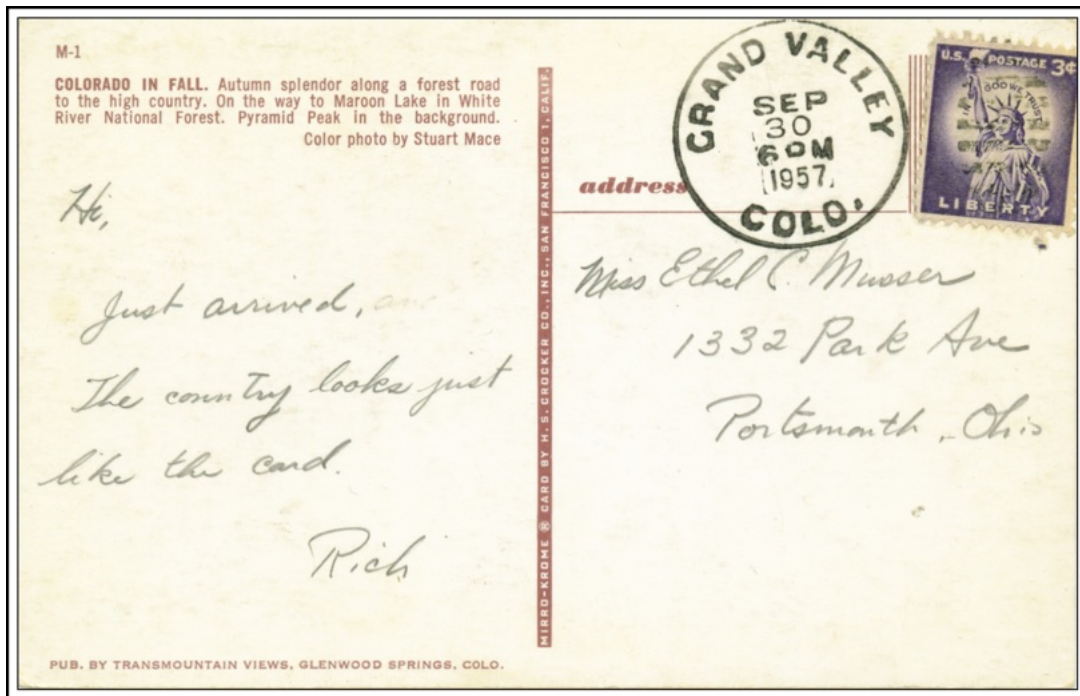 M-1
COLORADO IN FALL. Autumn splendor along a forest road
to the high country. On the way to Maroon Lake in White
River National Forest. Pyramid Peak in the background.
Color photo by Stuart Mace
Hi,
Just arrived,
The country looks just
like the card.
Rich
PUB. BY TRANSMOUNTAIN VIEWS, GLENWOOD SPRINGS, COLO.
MIRRO-KROME ® CARD BY H. S. CROCKER CO., INC., SAN FRANCISCO 1, CALIF.
address
GRAND VALLEY
SEP
30
6 PM
1957
COLO.
U.S. POSTAGE 3¢
IN GOD WE TRUST
LIBERTY
Miss Ethel C. Musser
1332 Park Ave
Portsmouth, Ohio